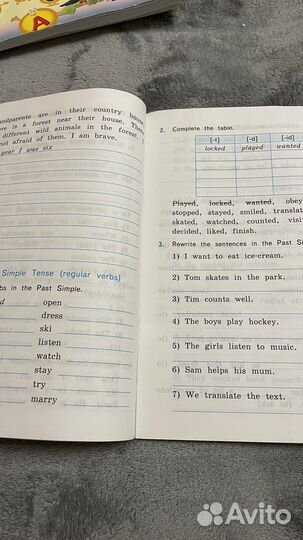 A
ndparents are in their country house
re is a forest near their house. There
different wild animals in the forest. I
not afraid of them. I am brave.
year I was six
Simple Tense (regular verbs)
bs in the Past Simple.
open
dress
ski
listen
watch
stay
try
marry
2. Complete the table.
[-t] [-d] [-id]
locked played wanted
Played, locked, wanted, obey
stopped, stayed, smiled, translat
skated, watched, counted, visi
decided, liked, finish.
3. Rewrite the sentences in the Past Si
1) I want to eat ice-cream.
2) Tom skates in the park.
3) Tim counts well.
4) The boys play hockey.
5) The girls listen to music.
6) Sam helps his mum.
7) We translate the text.
Avito